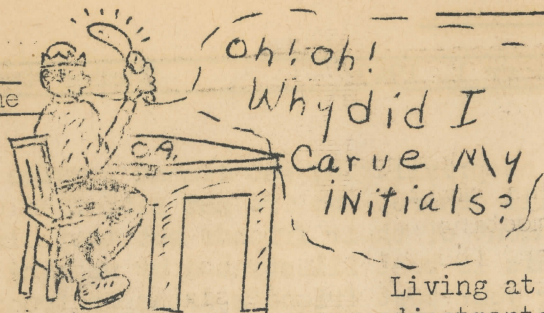 Oh! Oh!
Why did I
Carve My
iNitials?
C.A.
Living at